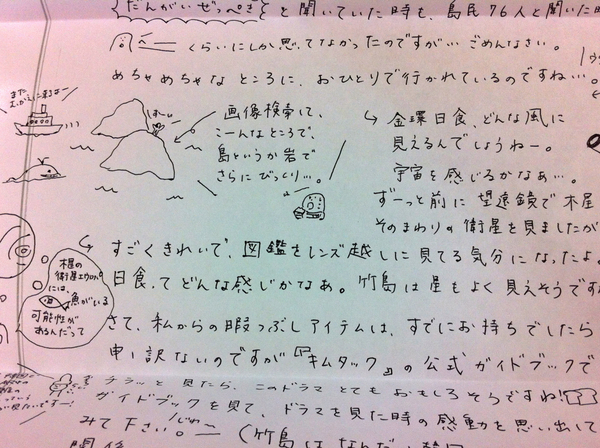 だんがいぜっぺき と聞いていた時も、島民76人と聞いた時
くらいにしか思ってなかったのですが…ごめんなさい。
めちゃめちゃな ところに、おひとりで行かれているのですね…。
また
むかえに来るよー
おーい
画像検索して、
こーんなところで、
島というか岩で
さらにびっくり…。
金環日食、どんな風に
見えるんでしょうねー。
宇宙を感じるかなぁ…。
ずーっと前に 望遠鏡で木星
そのまわりの衛星を見ましたが
すごくきれいで、図鑑をレンズ越しに見てる気分になったよ
日食ってどんな感じかなぁ。竹島は星もよく見えそうです
木星の
衛星エウロパ
には、
魚がいる
可能性が
あるんだって
さて、私からの暇つぶしアイテムは、すでにお持ちでしたら
申し訳ないのですが『キムタック』の公式ガイドブックで
チラッと見たら、このドラマ とても おもしろそうですね!
ガイドブックを見て、ドラマを見た時の感動を思い出して
みて下さい。
(竹島は なんだ